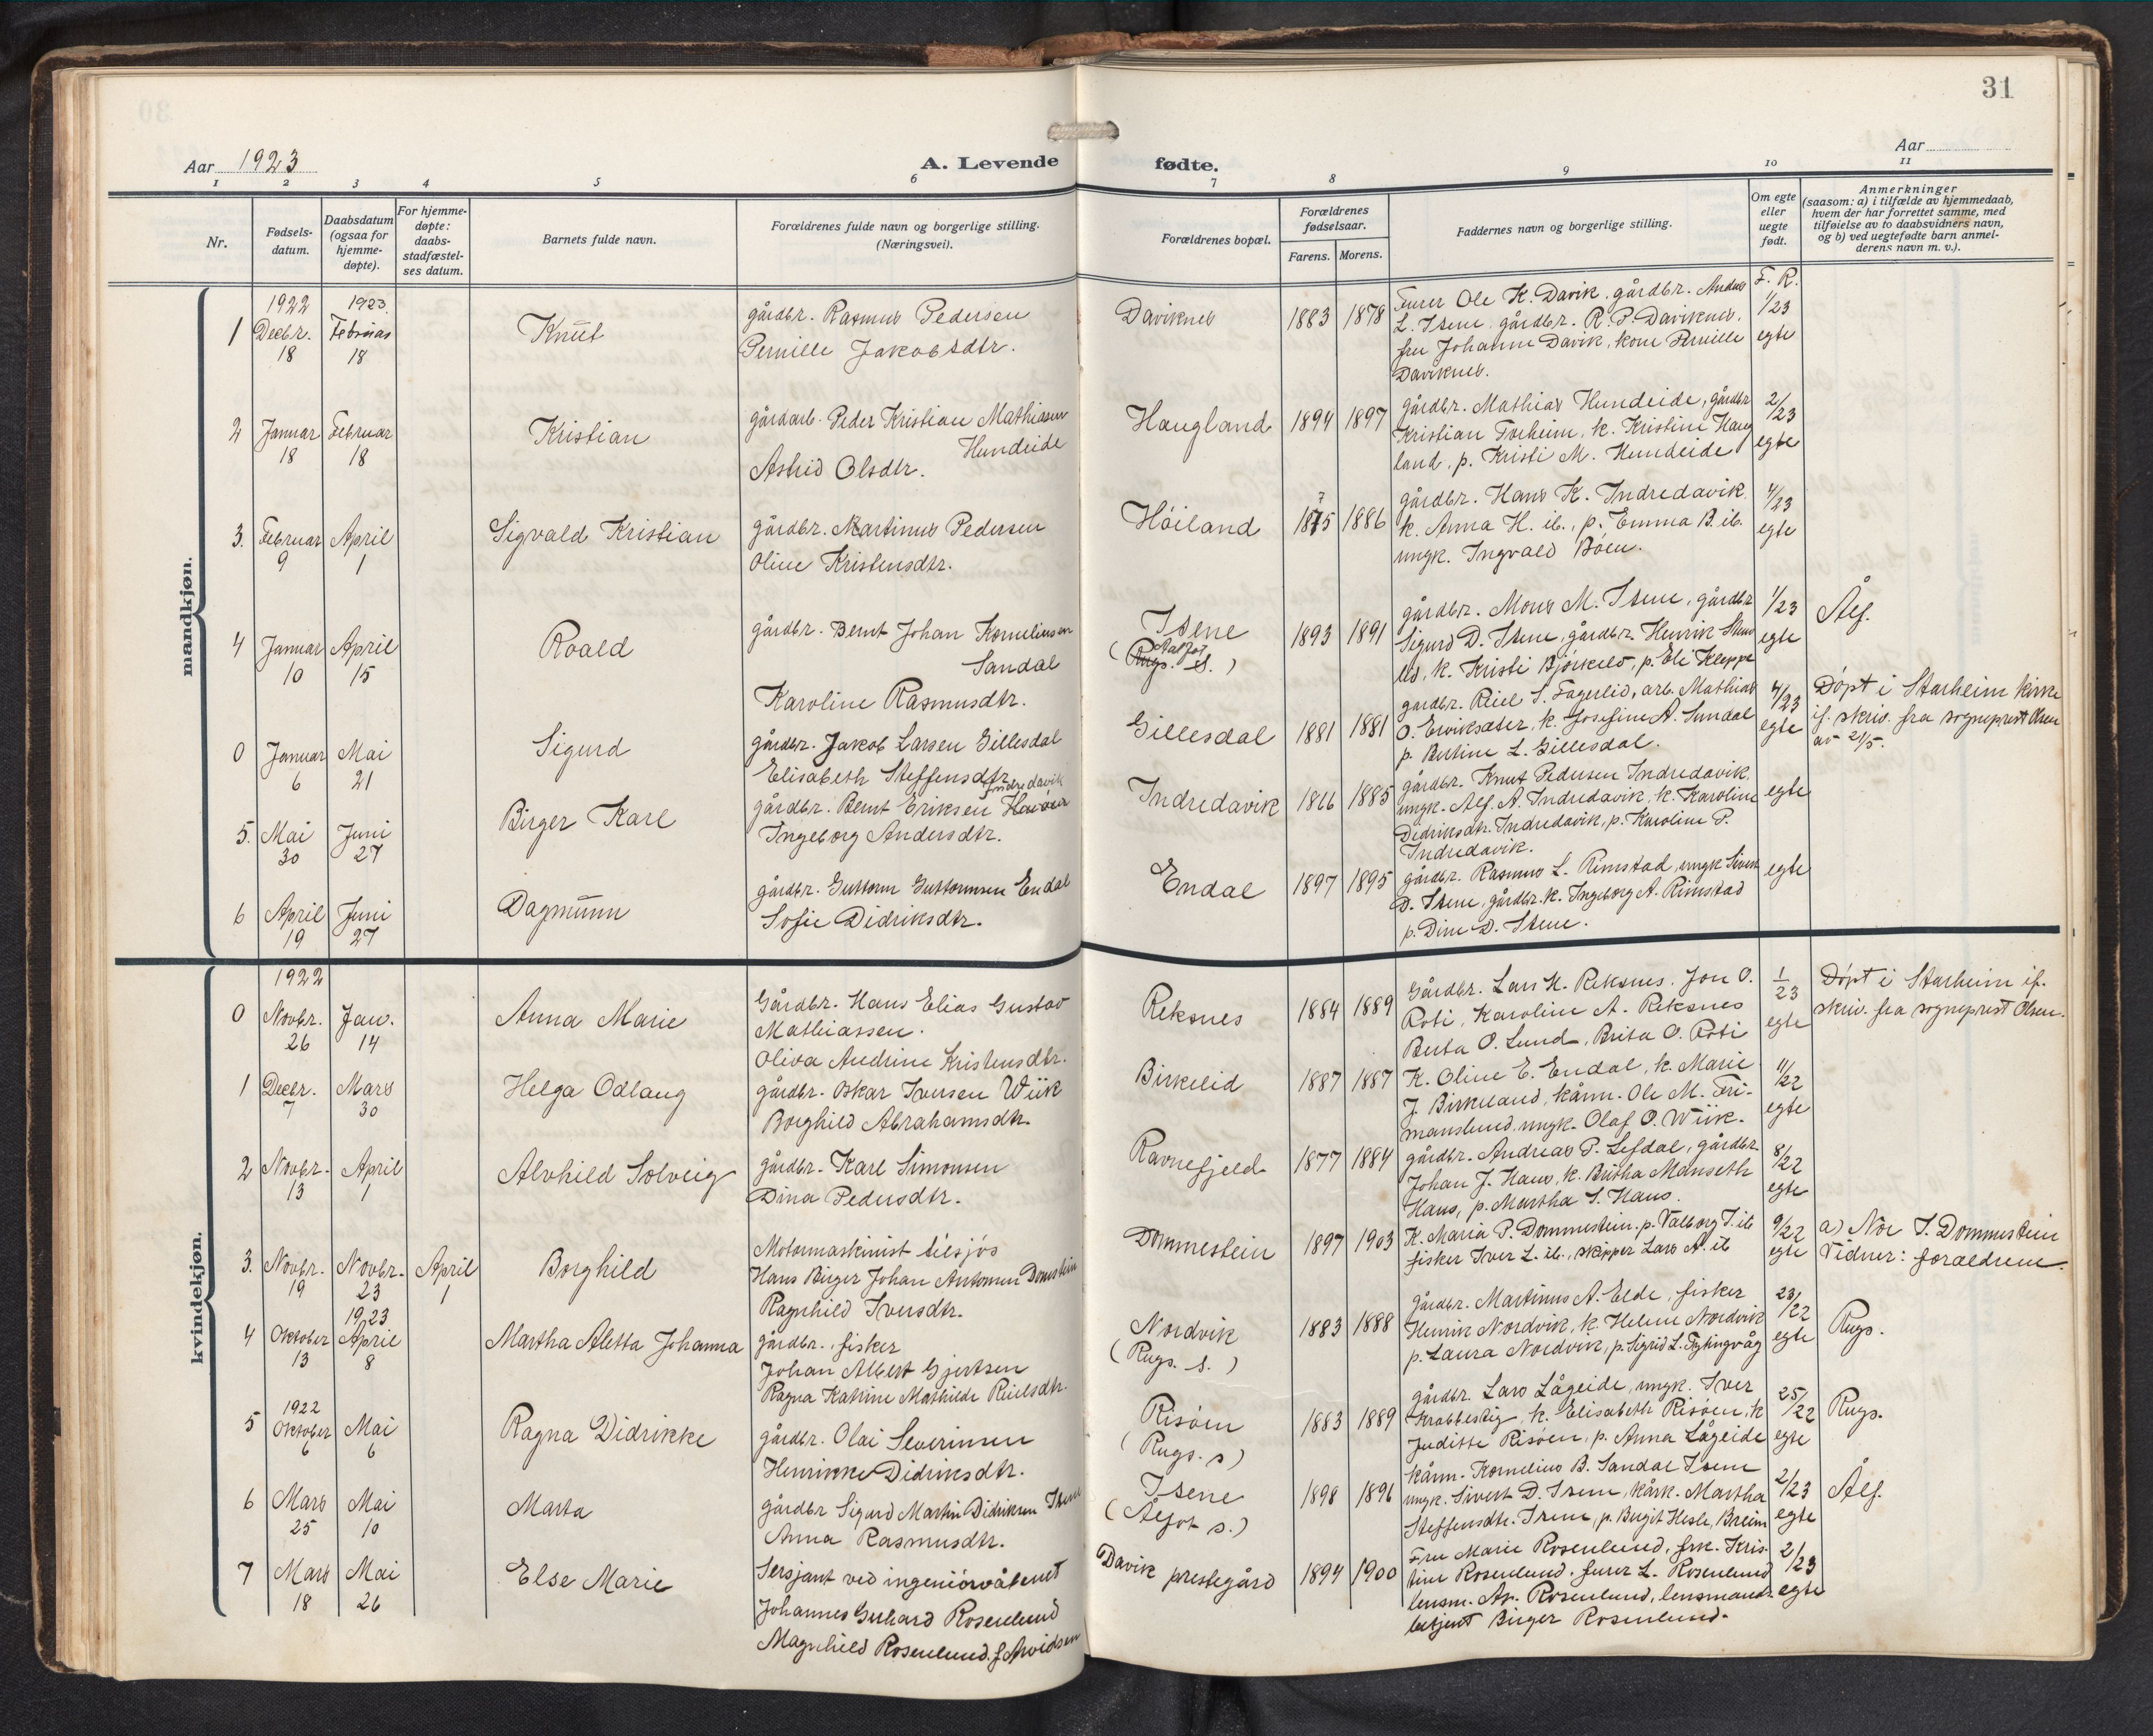 31
Aar 1923
A. Levende fødte.
Aar
1 2 3 4 5 6 7 8 9 10 11
Nr.
Fødsels-
datum.
Daabsdatum
(ogsaa for
hjemme-
døpte).
For hjemme-
døpte:
daabs-
stadfæstel-
ses datum.
Barnets fulde navn.
Forældrenes fulde navn og borgerlige stilling.
(Næringsvei).
Forældrenes bopæl.
Forældrenes
fødselsaar.
Farens. Morens.
Faddernes navn og borgerlige stilling.
Om egte
eller
uegte
født.
Anmerkninger
(saasom: a) i tilfælde av hjemmedaab,
hvem der har forrettet samme, med
tilføielse av to daabsvidners navn,
og b) ved uegtefødte barn anmel-
derens navn m. v.).
mandkjøn.
1
1922
Decbr.
18
1923.
Februar
18
Knut
gårdbr. Rasmus Pedersen
Pernille Jakobsdtr.
Daviknes
1883 1878
Furer Ole K. Davik, gårdbr. Anders
L. Isene, gårdbr. R. P. Daviknes,
fru Johanne Davik, kone Pernille
Daviknes.
F. R.
1/23
egte
2
Januar
18
Februar
18
Kristian
gårdarb. Peder Kristian Mathiassen
Hundeide
Astrid Olsdtr.
Haugland
1894 1897
gårdbr. Mathias Hundeide, gårdbr
Kristian Torheim, k. Kristine Haug
land, p. Kristi M. Hundeide
2/23
egte
3.
Februar
9
April
1
Sigvald Kristian
gårdbr. Martinus Pedersen
Oline Kristensdtr.
Høiland
7
1875 1886
gårdbr. Hans K. Indredavik,
k. Anna H. ib., p. Emma B. ib.
ungk. Ingvald Bøen.
4/23
egte
4
Januar
10
April
15
Roald
gårdbr. Bernt Johan Korneliussen
Sandal
Karoline Rasmusdtr.
Isene
(Rugs. Aalfot s.)
1893 1891
gårdbr. Mons M. Isene, gårdbr
Sigurd D. Isene, gårdbr. Henrik
k. Kristi Bjørkelo, p. Eli Kleppe
1/23
egte
Ålf.
0
Januar
6
Mai
21
Sigurd
gårdbr. Jakob Larsen Gillesdal
Elisabeth Steffensdtr
Gillesdal
1881 1881
gardbr. Riel S. Fagerlid, arb. Mathias
O. Erviksæter, k. Josefine A. Sundal
p. Bertine L. Gillesdal.
4/23
egte
Døpt i Starheim kirke
if. skriv. fra sogneprest Olsen
av 21/5.
5.
Mai
30
Juni
27
Birger Karl
gårdbr. Bernt Eriksen Indredavik
Ingeborg Andersdtr.
Indredavik
1886 1885
gårdbr. Knut Pedersen Indredavik,
ungk. Alf. A. Indredavik, k. Karoline
Didriksdtr. Indredavik, p. Karoline P.
Indredavik.
egte
6
April
19
Juni
27
Dagmunn
gårdbr. Guttorm Guttormsen Endal
Sofie Didriksdtr.
Endal
1897 1895
gårdbr. Rasmus L. Rimstad, ungk Sivert
D. Isene, gårdbr. k. Ingeborg A. Rimstad
p. Dine D. Isene.
egte
kvindekjøn.
0
1922
Novbr.
26
Jan.
14
Anna Marie
Gårdbr. Hans Elias Gustav
Mathiassen.
Oliva Andrine Kristensdtr.
Reksnes
1884 1889
Gårdbr. Lars H. Reksnes. Jon O.
Roti, Karoline A. Reksnes
Berta O. Lund, Brita O. Roti
1/23
egte
Døpt i Starheim if.
skriv. fra sogneprest Olsen.
1
Decbr.
7
Mars
30
Helga Odlaug
gårdbr. Oskar Iversen Wiik
Borghild Abrahamsdtr.
Birkelid
1887 1887
K. Oline E. Endal, k. Marie
J. Birkeland, kårm. Ole M. Fri-
manslund, ungk. Olaf O. Wiik.
11/22
egte
2
Novbr.
13
April
1
Alvhild Solveig
gårdbr. Karl Simonsen
Dina Pedersdtr.
Ravnefjeld
1877 1884
gårdbr. Andreas P. Lefdal, gårdbr.
Johan J. Haus, k. Britha Manseth
Haus, p. Martha S. Haus.
8/22
egte
3.
Novbr.
19
Novbr.
23
April
1
Borghild
Motormaskinist tilsjøs
Hans Birger Johan Antonsen Domstein
Ragnhild Iversdtr.
Dommestein
1897 1903
K. Maria P. Dommestein, p. Valborg I. ib
fisker Iver L. ib., skipper Lars A. ib
9/22
egte
a) Nor I. Dommestein
Vidner: forældrene.
4
Oktober
13
1923
April
8
Martha Aletta Johanna
gårdbr., fisker
Johan Albert Gjertsen
Ragna Katrine Mathilde Reielsdtr.
Nordvik
(Rugs. s.)
1883 1888
gårdbr. Martinus A. Elde, fisker
Henrik Nordvik, k. Helene Nordvik
p. Laura Nordvik, p. Sigrid L. Frykingvåg
23/22
egte
Rugs.
5
1922
Oktober
6
Mai
6
Ragna Didrikke
gårdbr. Olai Severinsen
Henrikke Didriksdtr.
Risøen
(Rugs. s)
1883 1889
gårdbr. Lars Lågeide, ungk. Iver
Krabbestig, k. Elisabeth Risøen, k
Juditte Risøen, p. Anna Lågeide
25/22
egte
Rugs.
6
Mars
25
Mai
10
Marta
gårdbr Sigurd Martin Didriksen Isene
Anna Rasmusdtr.
Isene
(Ålfot s.)
1898 1896
kårm. Kornelius B. Sandal Isene
ungk. Sivert D. Isene, kårk. Martha
Steffensdtr. Isene, p. Birgit Hesle, Breim
2/23
egte
Ålf.
7
Mars
18
Mai
26
Else Marie
Sersjant ved ingeniørvåbenet
Johannes Gerhard Rosenlund
Magnhild Rosenlund f. Arvidsen
Davik prestegård
1894 1900
Fru Marie Rosenlund, frk. Kris-
tine Rosenlund, furer L. Rosenlund
lensm. Ar. Rosenlund, lensmands-
betjent Birger Rosenlund.
2/23
egte